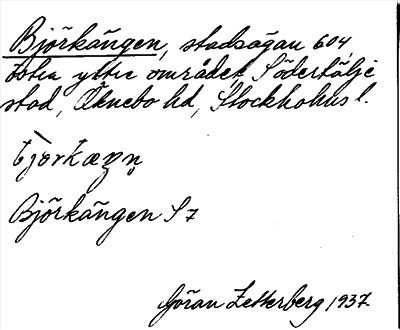 Björkängen, stadsägan 604,
östra yttre området, Södertälje
stad, Öknebo hd, Stockholms l.
Björkängen S 7
Göran Zetterberg 1937